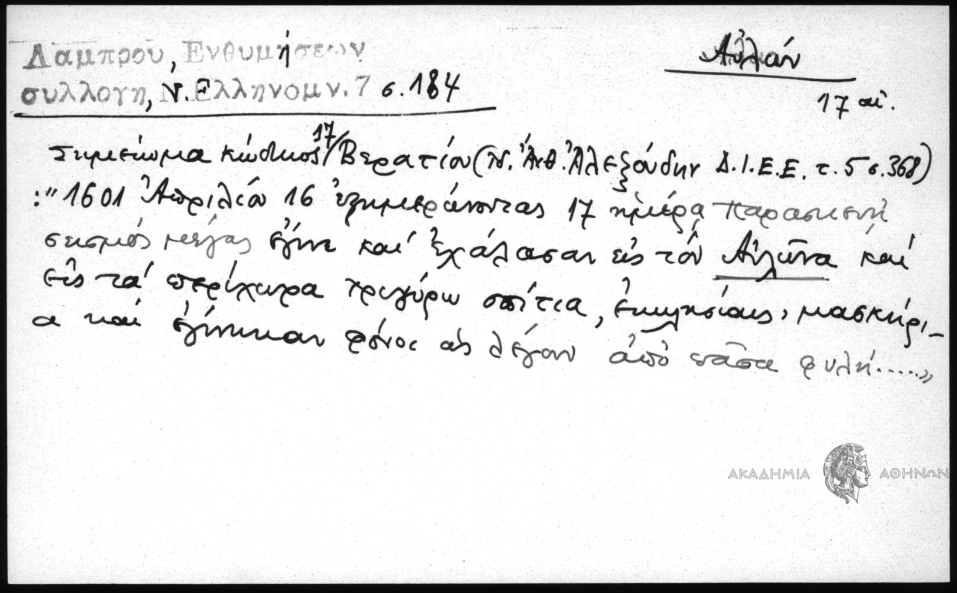 Λαμπρου, Ενθυμήσεων
συλλογη, Ν. Ελληνομν. 7 σ. 184
Αὐλών
17 αἰ.
Σημείωμα κώδικος 17/Βερατίου (Ν. Ἀνθ. Ἀλεξούδην Δ.Ι.Ε.Ε. τ. 5 σ. 368)
:"1601 Ἀπριλίου 16 ἐξημερώνοντας 17 ἡμέρᾳ Παρασκευή
σεισμός μέγας ἔγινε καί ἐχάλασαν εἰς τόν Αὐλῶνα καί
εἰς τά περίχωρα τριγύρω σπίτια, ἐκκλησίαις, μασκήρι-
α καί ἐγίνηκαν φόνοι ὡς λέγουν ἀπό πᾶσα φυλή....."
ΑΚΑΔΗΜΙΑ ΑΘΗΝΩΝ